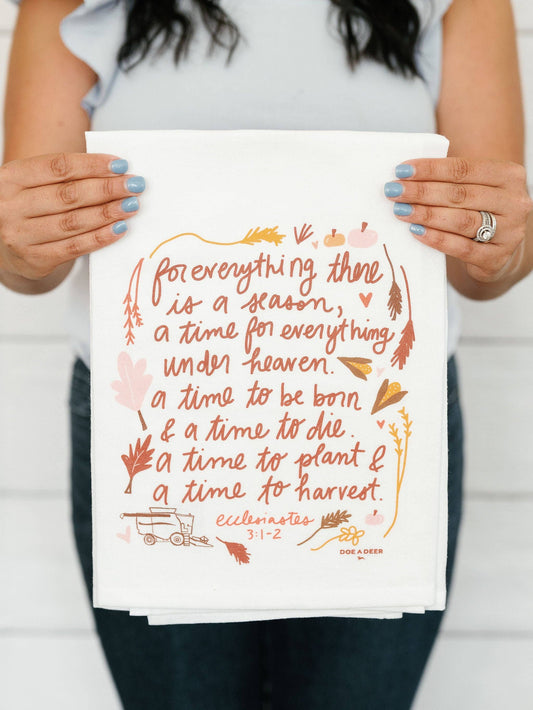 for everything there
is a season,
a time for everything
under heaven.
a time to be born
& a time to die.
a time to plant &
a time to harvest.
ecclesiastes
3:1-2
DOE A DEER